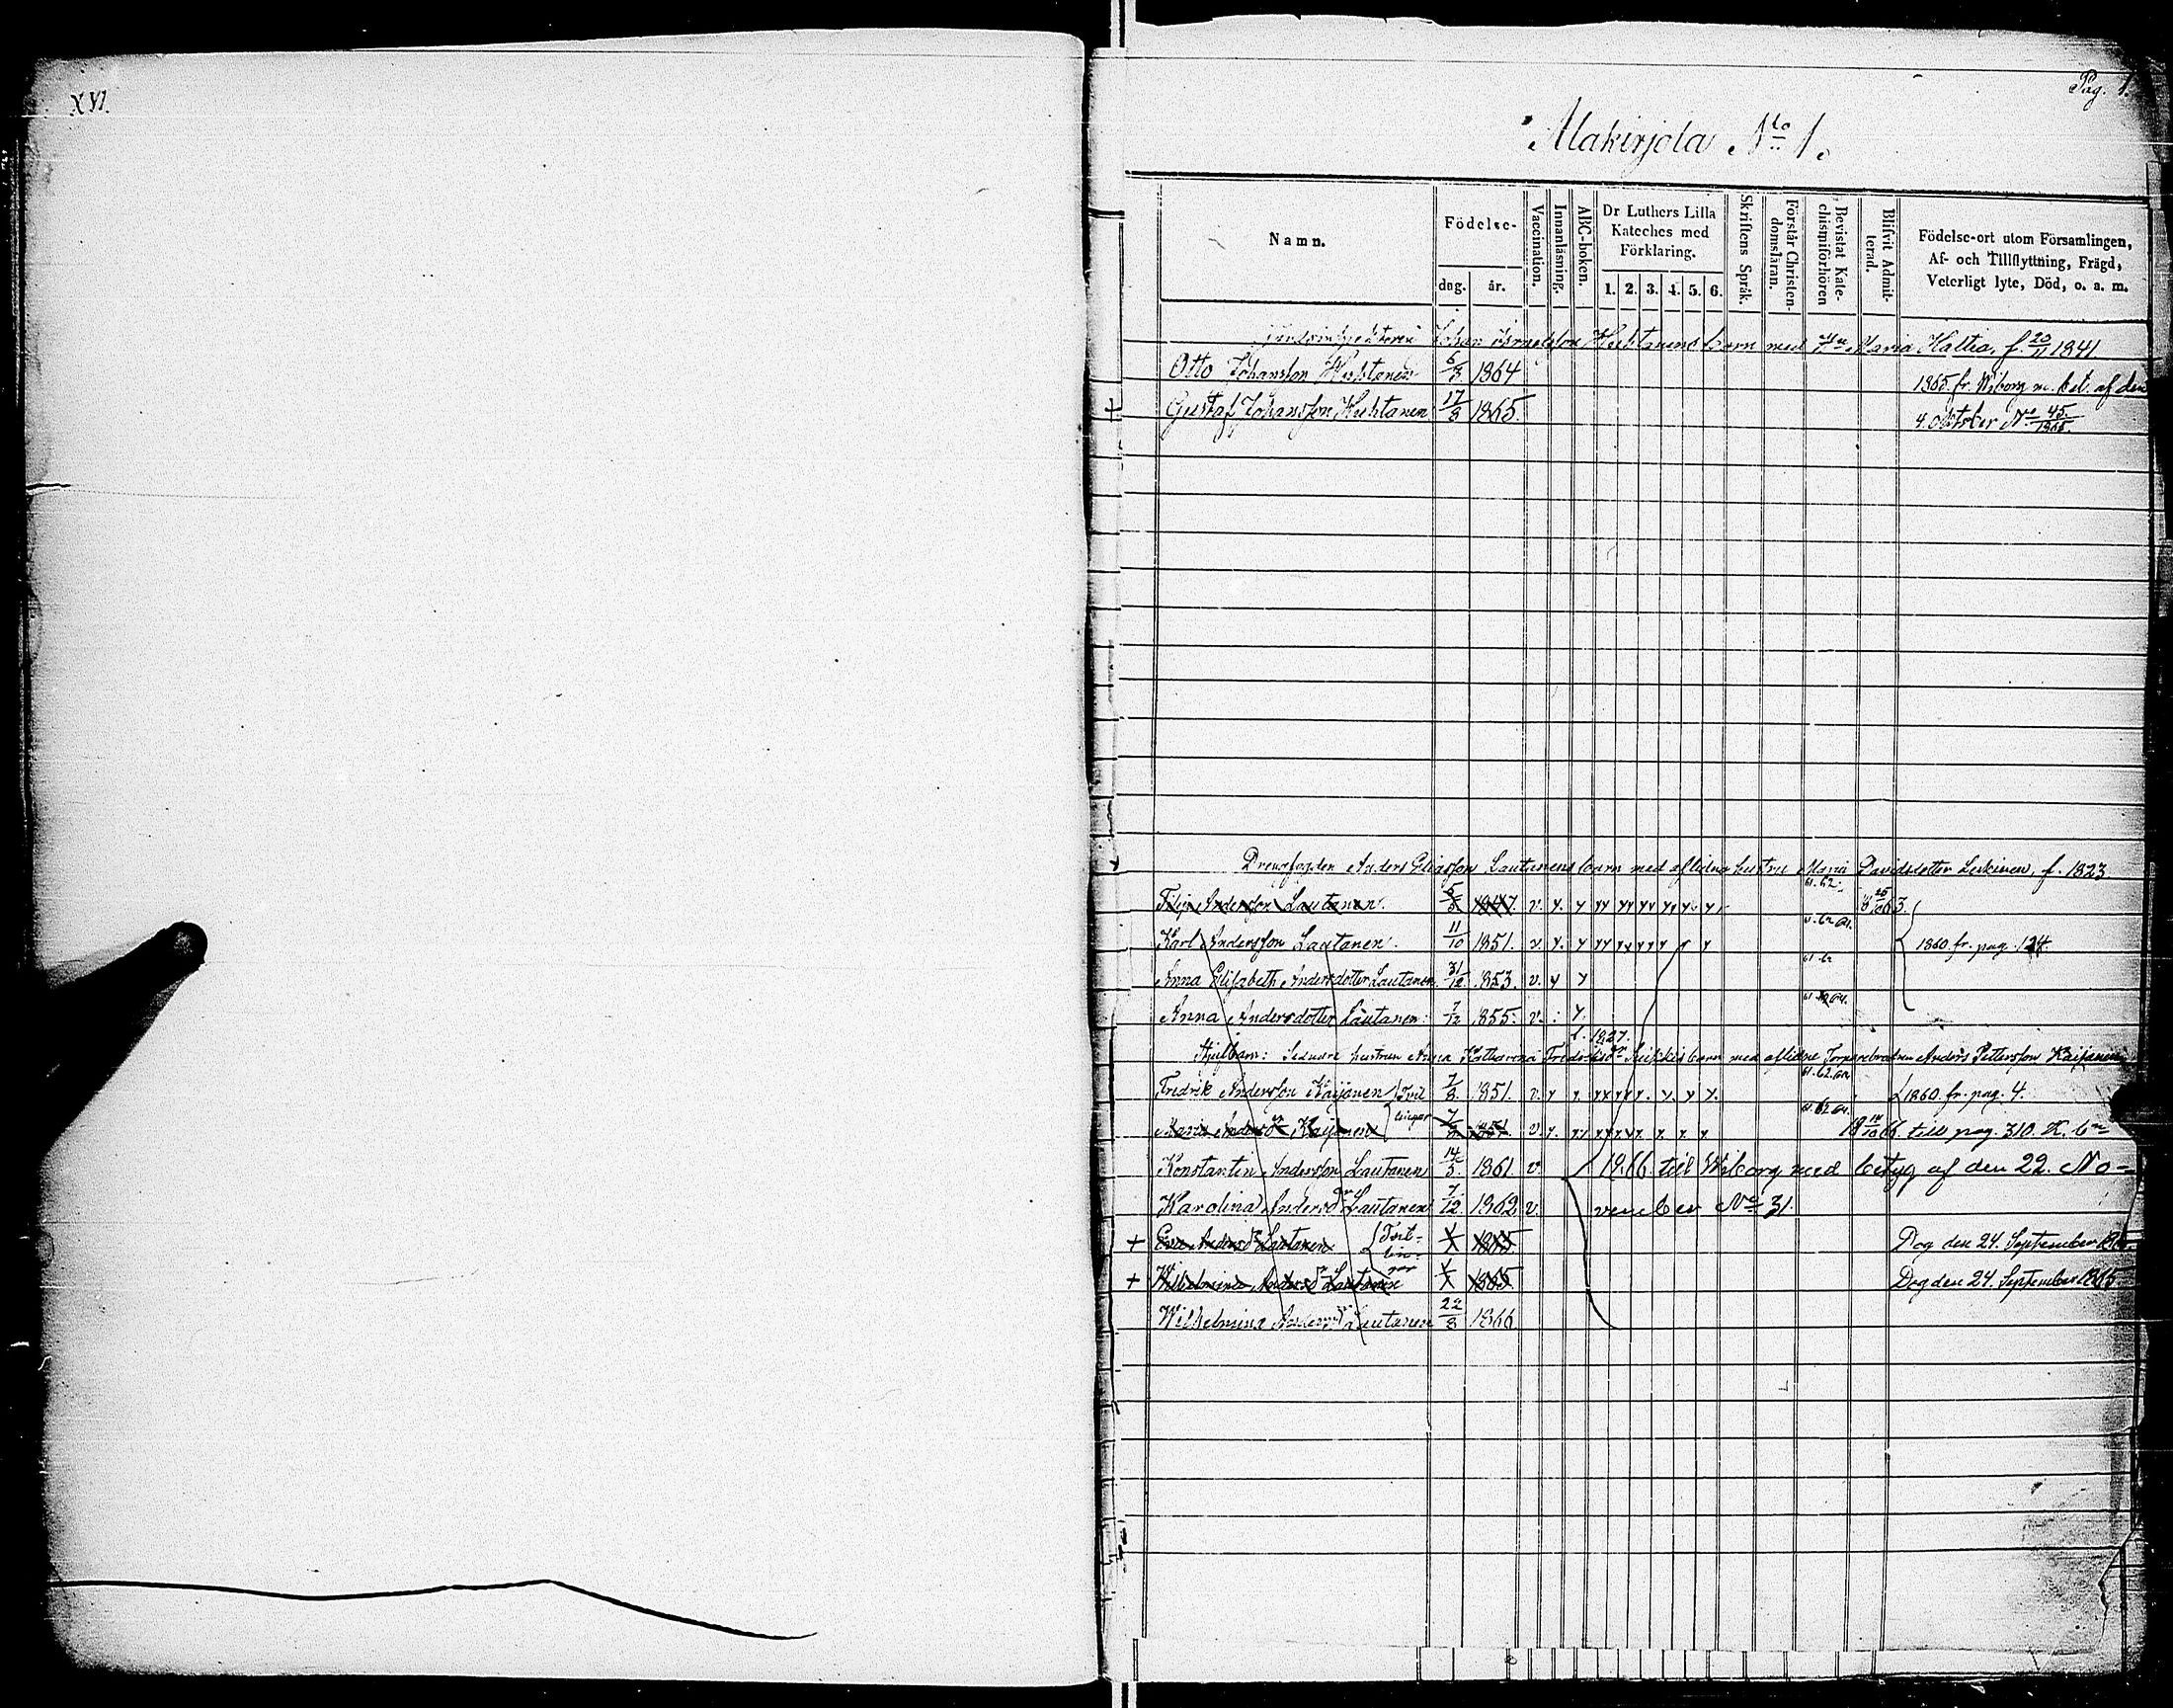 XVI.
Pag. 1.
Alakirjola No 1.
Namn.
Födelse-
dag.
år.
Vaccination.
Innanläsning.
ABC-boken.
Dr Luthers Lilla
Kateches med
Förklaring.
1. 2. 3. 4. 5. 6.
Skriftens Språk.
Förstår Christen-
domsläran.
Bevistat Kate-
chismiförhören
Blifvit Admit-
terad.
Födelse-ort utom Församlingen,
Af- och Tillflyttning, Frägd,
Veterligt lyte, Död, o. a. m.
Johan barn med Maria Hattia, f. 20/11 1841
Otto Johansson 5/3 1864 1865 fr. Wiborg m. bet. af den
+ Gustaf Johansson 17/8 1865. 4. October No 45/1865.
Drengfogden Anders Eliasson Lautanens barn med aflidna hustru Maria Davidsdotter Leskinen, f. 1823
61. 62.
Filip Andersson Lautanen. 5/5 1847. v. y. y yy yy yy yy y. y
61. 62. 64.
Karl Andersson Lautanen. 11/10 1851. v. y. y yy yy yy y y y 1860. fr. pag. 124.
61. 62
Anna Elisabeth Andersdotter Lautanen 31/12 1853. v. y y
61. 62 64.
Anna Andersdotter Lautanen 7/12 1855. v. : y.
f. 1827.
Styfbarn: Sednare hustrun Anna Katharina barn med aflidne Anders Pettersson Kaijanen
61. 62. 64.
Fredrik Andersson Kaijanen Tvil- 7/8 1851. v. y y. yy yy y. y. y y. 1860. fr. pag. 4.
lingar 61. 62 64.
Maria Andersdr Kaijanen 7/8 1851. v. y. yy yy yy y. y. y 18 14/10 66. till pag. 310. K. bn
Konstantin Andersson Lautanen 14/5 1861. v. 1866 till Wiborg med betyg af den 22. No-
Karolina Andersdr Lautanen 7/12 1862 v. vember No 31.
+ Eva Andersdr Lautanen Tvil- 1865 Dog den 24. September 1865.
lin-
gar
+ Wilhelmina Andersdr Lautanen 1865 Dog den 24. September 1865.
Wilhelmina Andersdr Lautanen 22/8 1866